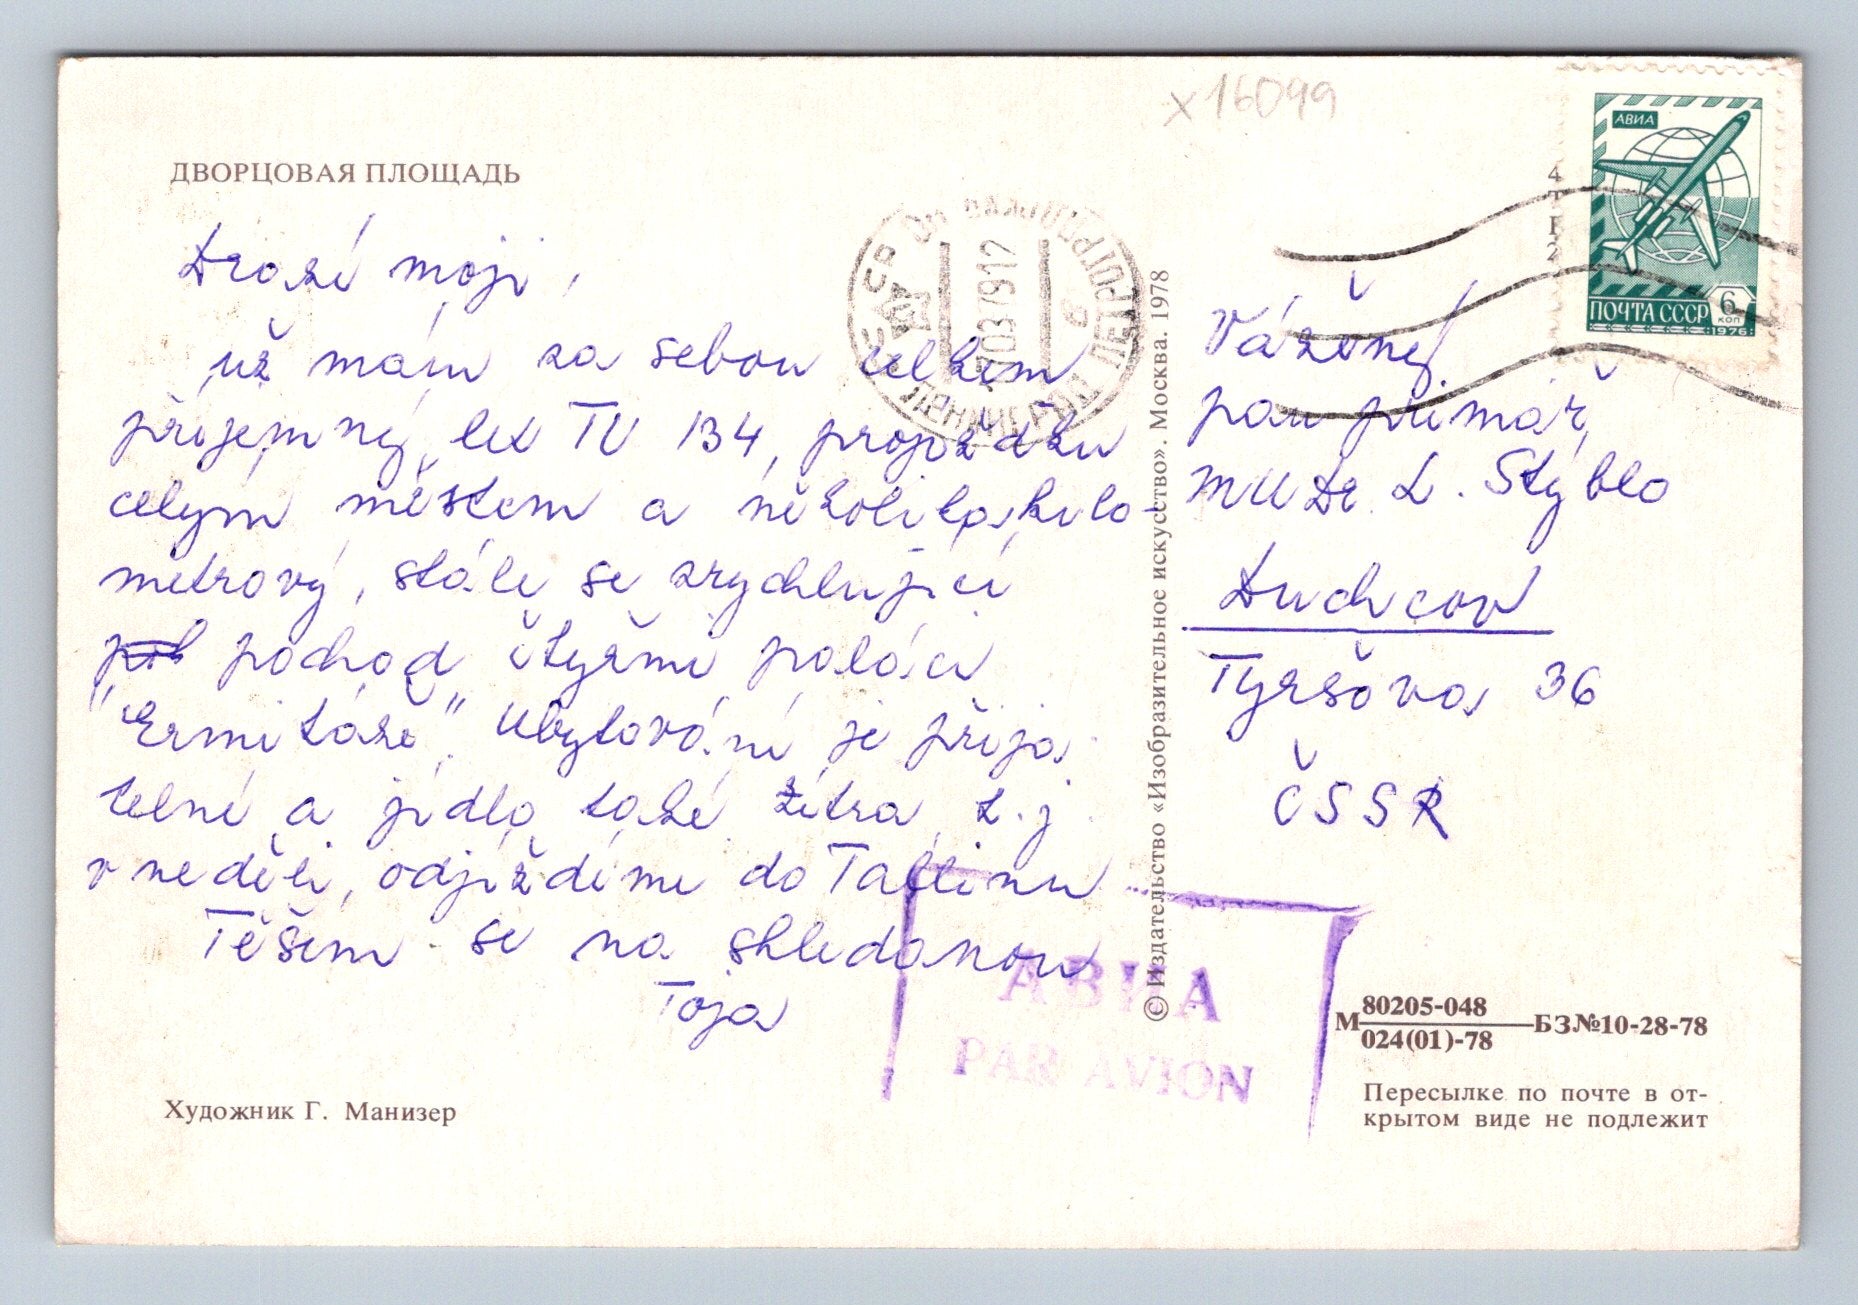 x16099
ДВОРЦОВАЯ ПЛОЩАДЬ
АВИА
ПОЧТА СССР
6
коп
1976
Drazí moji,
už mám za sebou celkem
příjemný let TU 134, projížďku
celým městem a několikakilo-
metrový, stále se zrychlující
pochod čtyřmi paláci
"Ermitáže". Ubytování je přija-
telné a jídlo také. Zítra, t.j.
v neděli, odjíždíme do Tallinu
Těším se na shledanou
Toja
Vážený
pan primář
MUDr. L. Stýblo
Duchcov
Tyršova 36
ČSSR
© Издательство «Изобразительное искусство». Москва. 1978
АВИА
PAR AVION
М 80205-048 БЗ№10-28-78
024(01)-78
Пересылке по почте в от-
крытом виде не подлежит
Художник Г. Манизер